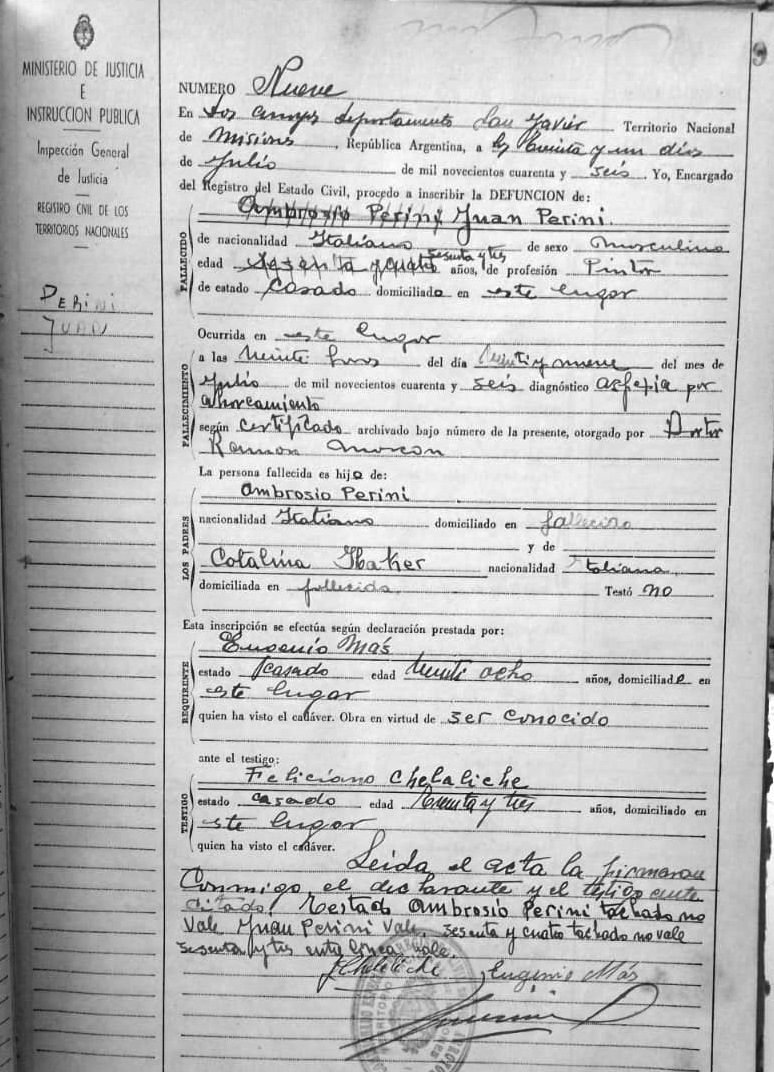 MINISTERIO DE JUSTICIA
E
INSTRUCCION PUBLICA
Inspección General
de Justicia
REGISTRO CIVIL DE LOS
TERRITORIOS NACIONALES
PERINI
JUAN
9
NUMERO Nueve
En departamento San Javier Territorio Nacional
de Misiones, República Argentina, a los treinta y un días
de Julio de mil novecientos cuarenta y seis. Yo, Encargado
del Registro del Estado Civil, procedo a inscribir la DEFUNCION de:
Ambrosio Perini Juan Perini.
FALLECIDO
de nacionalidad Italiano de sexo masculino
sesenta y tres
edad sesenta y cuatro años, de profesión Pintor
de estado casado domiciliado en este lugar
FALLECIMIENTO
Ocurrida en este lugar
a las veinte horas del día veinti y nueve del mes de
Julio de mil novecientos cuarenta y seis diagnóstico asfepia por
ahorcamiento
según certificado archivado bajo número de la presente, otorgado por Doctor
Ramon
LOS PADRES
La persona fallecida es hijo de:
Ambrosio Perini
nacionalidad Italiano domiciliado en fallecido
y de
Catalina nacionalidad Italiana
domiciliada en fallecida. Testó no
REQUIRENTE
Esta inscripción se efectúa según declaración prestada por:
Eugenio Más
estado casado edad veinti ocho años, domiciliado en
este lugar
quien ha visto el cadáver. Obra en virtud de ser conocido
TESTIGO
ante el testigo:
Feliciano Chelaliche
estado casado edad treinta y tres años, domiciliado en
este lugar
quien ha visto el cadáver.
Leida el acta la firmaron
conmigo, el declarante y el testigo ante
citado. Testado Ambrosio Perini tachado no
vale Juan Perini vale. sesenta y cuatro tachado no vale
sesenta y tres entre linea vale.
Eugenio Más